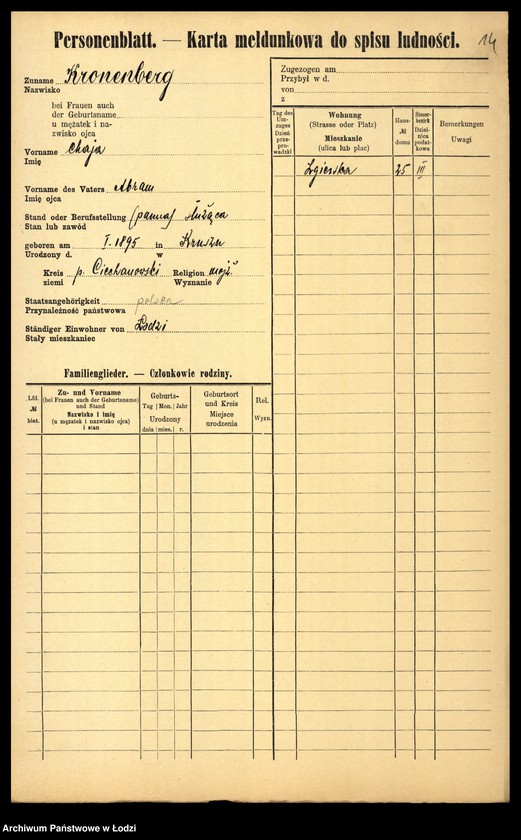 Personenblatt. — Karta meldunkowa do spisu ludności.
14
Zuname Kronenberg
Nazwisko
bei Frauen auch
der Geburtsname
u mężatek i na-
zwisko ojca
Vorname Chaja
Imię
Vorname des Vaters Abram
Imię ojca
Stand oder Berufsstellung (panna) służąca
Stan lub zawód
geboren am I. 1895 in
Urodzony d. w
Kreis p. Ciechanowski Religion mojż.
ziemi Wyznanie
Staatsangehörigkeit polska
Przynależność państwowa
Ständiger Einwohner von Łodzi
Stały mieszkaniec
Familienglieder. — Członkowie rodziny.
Lfd. № bież.
Zu- und Vorname
(bei Frauen auch der Geburtsname)
und Stand
Nazwisko i imię
(u mężatek i nazwisko ojca)
i stan
Geburts-
Tag Mon. Jahr
Urodzony
dnia mies. r.
Geburtsort
und Kreis
Miejsce
urodzenia
Rel.
Wyzn.
Zugezogen am
Przybył w d.
von
z
Tag des
Um-
zuges
Dzień
prze-
prowadzki
Wohnung
(Strasse oder Platz)
Mieszkanie
(ulica lub plac)
Haus-
№
domu
Steuer-
bezirk
Dziel-
nica
podat-
kowa
Bemerkungen
Uwagi
Zgierska 25 III
Archiwum Państwowe w Łodzi